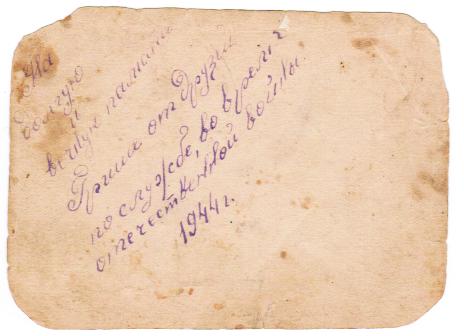 На
долгую
и
вечную память
Гриша от друга
по службе, во время
отечественной войны.
1944 г.